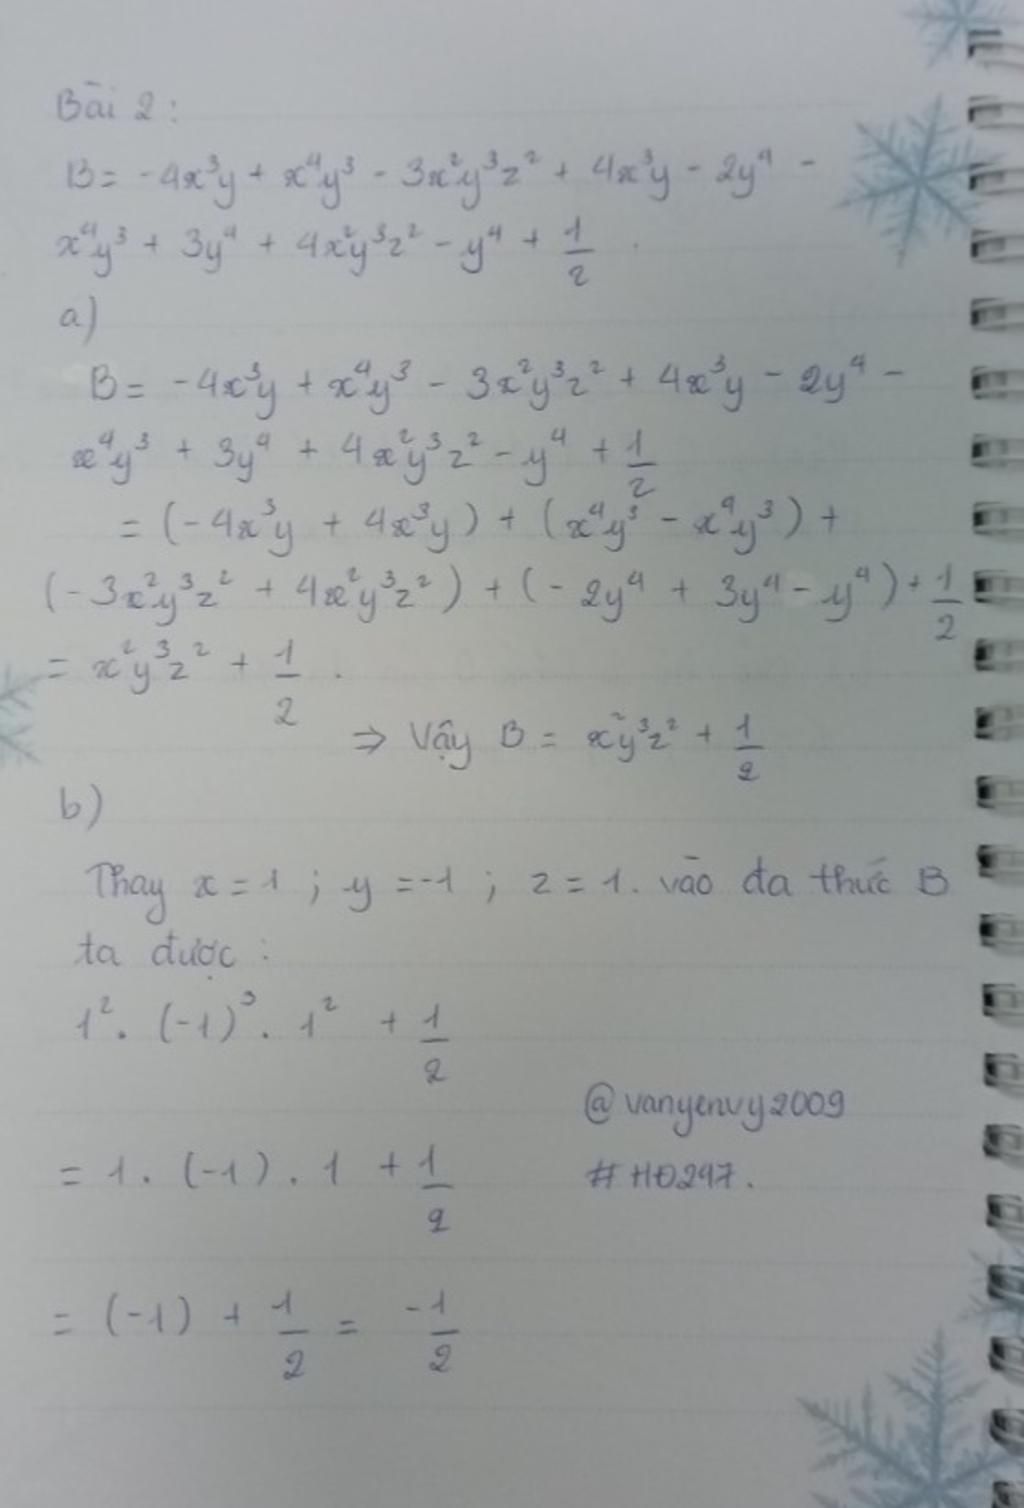 Bài 2:
B = -4x³y + x⁴y³ - 3x²y³z² + 4x³y - 2y⁴ -
x⁴y³ + 3y⁴ + 4x²y³z² - y⁴ + 1/2.
a)
B = -4x³y + x⁴y³ - 3x²y³z² + 4x³y - 2y⁴ -
x⁴y³ + 3y⁴ + 4x²y³z² - y⁴ + 1/2
= (-4x³y + 4x³y) + (x⁴y³ - x⁴y³) +
(-3x²y³z² + 4x²y³z²) + (-2y⁴ + 3y⁴ - y⁴) + 1/2
= x²y³z² + 1/2.
⇒ Vậy B = x²y³z² + 1/2
b)
Thay x = 1 ; y = -1 ; z = 1. vào đa thức B
ta được:
1². (-1)³. 1² + 1/2
@vanyenvy2009
= 1. (-1). 1 + 1/2
#HĐ247.
= (-1) + 1/2 = -1/2